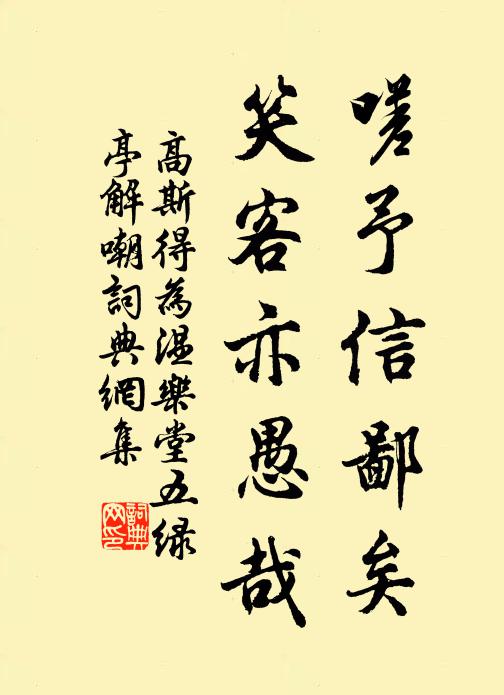 嗟予信鄙矣
笑客亦愚哉
高斯得為温樂堂五綠
亭解嘲詞典網集
詞典网印